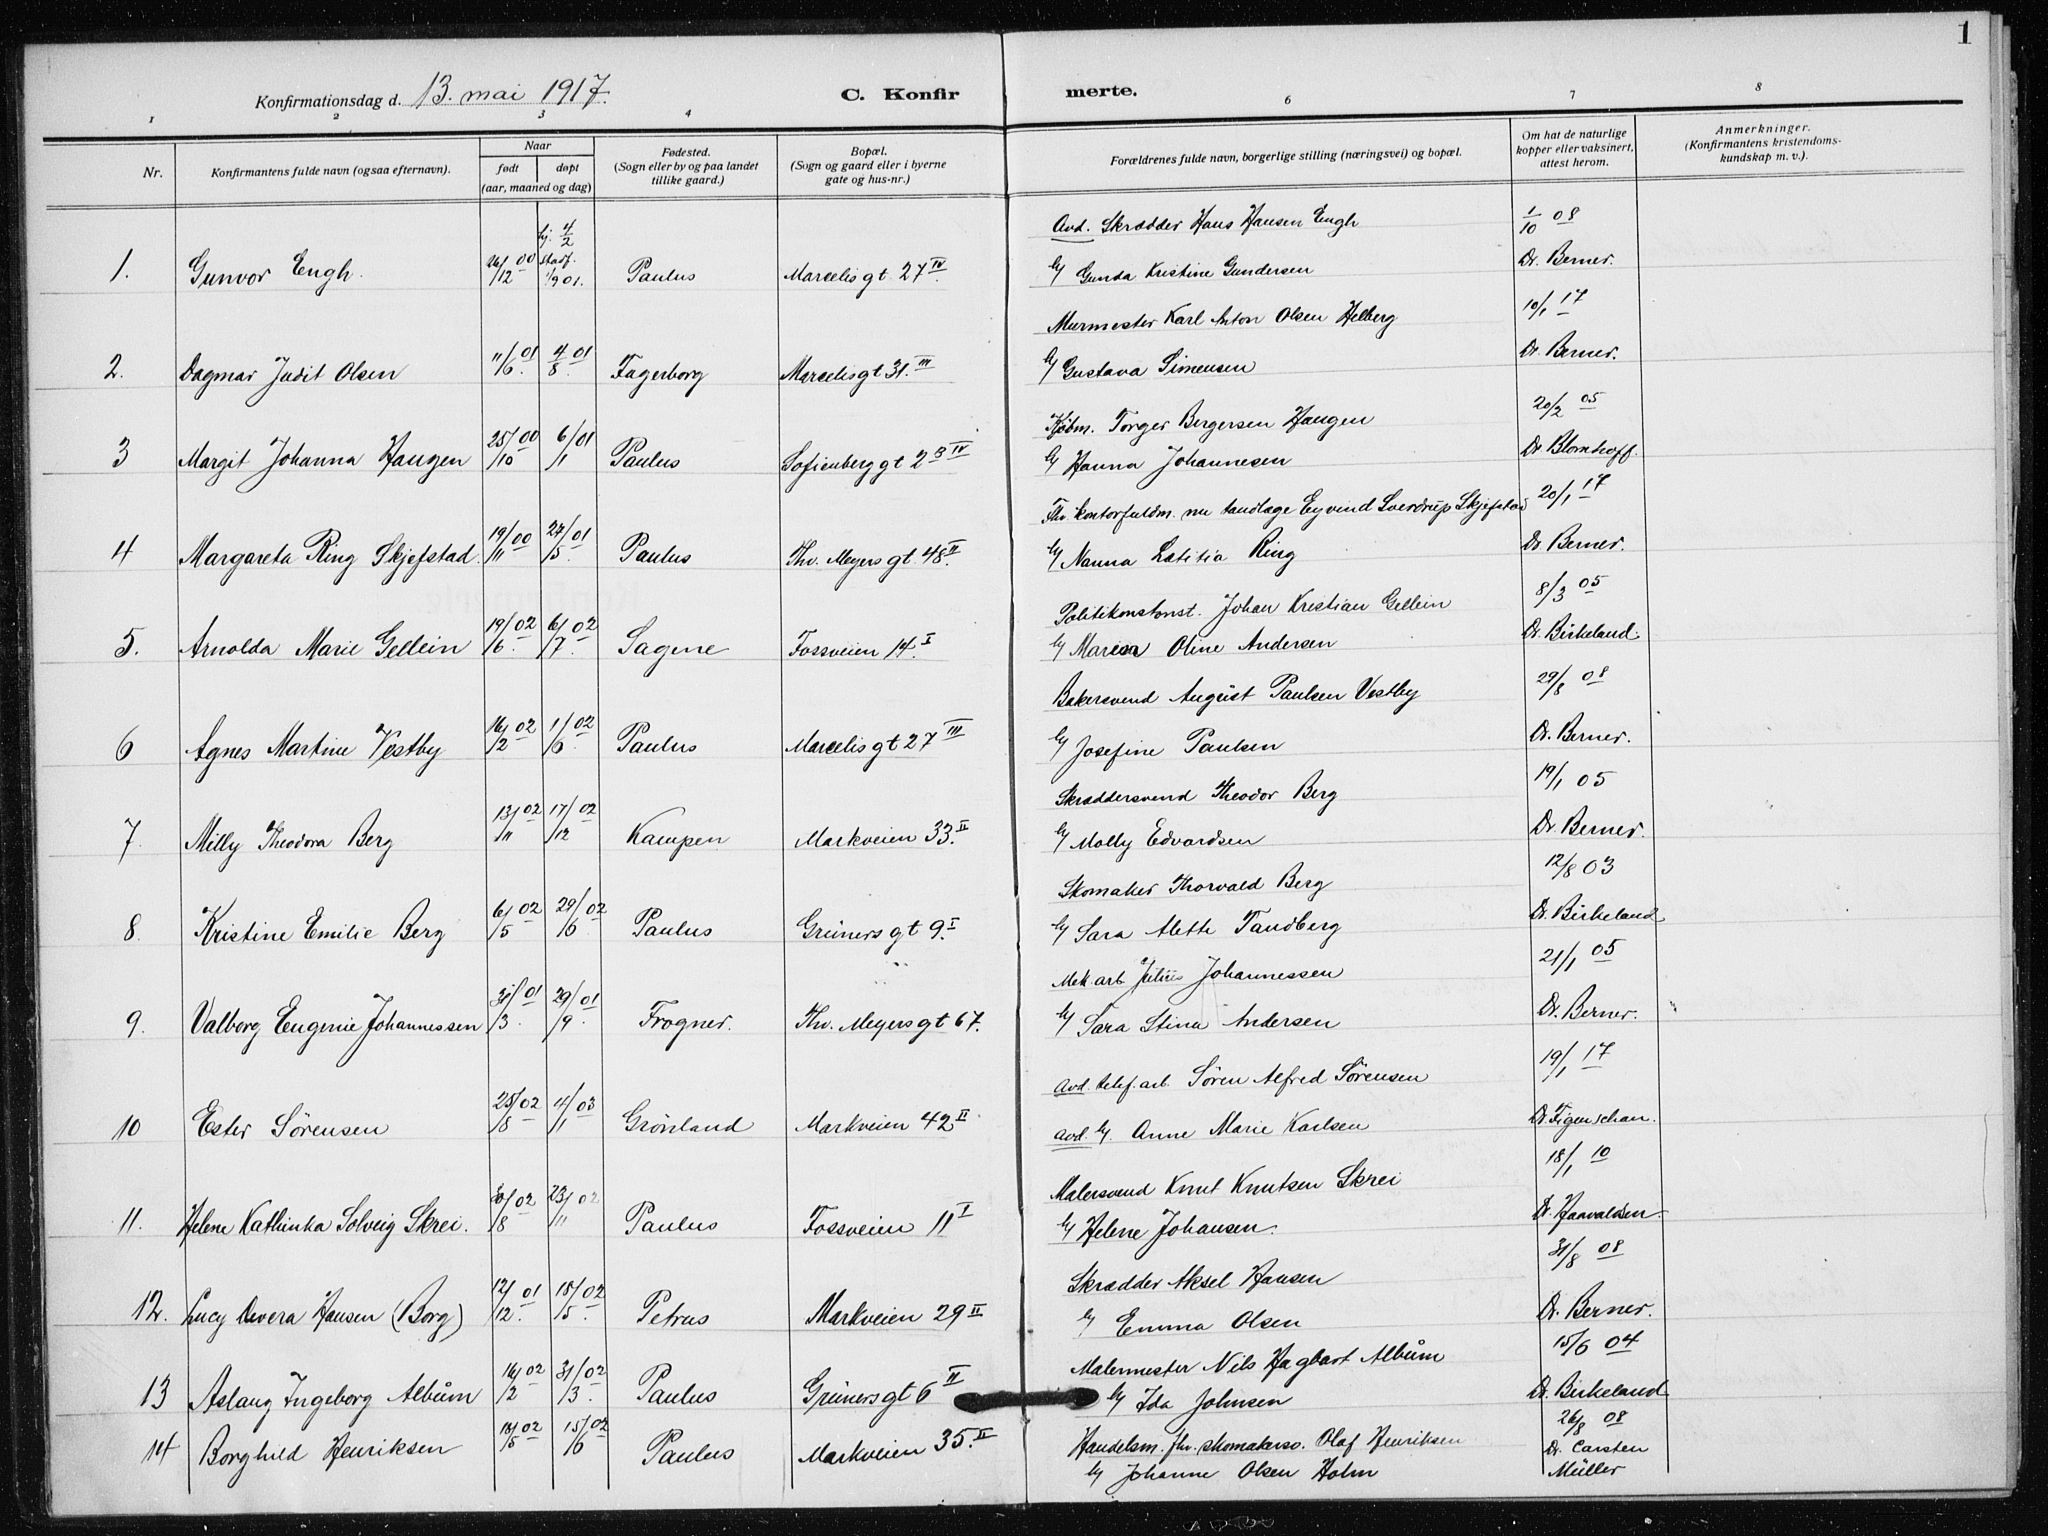 1
Konfirmationsdag d. 13. mai 1917. C. Konfirmerte.
1 2 3 4 6 7 8
Nr.
Konfirmantens fulde navn (ogsaa efternavn).
Naar
født døpt
(aar, maaned og dag)
Fødested.
(Sogn eller by og paa landet
tillike gaard.)
Bopæl.
(Sogn og gaard eller i byerne
gate og hus-nr.)
Forældrenes fulde navn, borgerlige stilling (næringsvei) og bopæl.
Om hat de naturlige
kopper eller vaksinert,
attest herom.
Anmerkninger.
(Konfirmantens kristendoms-
kundskap m. v.).
Avd. Skrædder Hans Hansen Engh 1/10 08
1. Gunvor Engh. 26/12 00 hj. 4/2 stadf. 1/9 01. Paulus Marcelisgt 27 IV. Gunda Kristine Gundersen Dr. Berner.
Murmester Karl Anton Olsen Helberg 10/1 17
2. Dagmar Judit Olsen 11/6 01 4/8 01 Fagerborg Marcelisgt 31. III Gustava Simensen Dr. Berner.
Kjøbm. Torger Bergersen Haugen 20/2 05
3 Margit Johanna Haugen 25/10 00 6/1 01 Paulus Sofienberggt 28 IV Hanna Johannesen Dr. Blomhoff.
Fhv. kontorfuldm. nu tandlæge Eyvind Sverdrup Skjefstad 20/1 17
4 Margareta Ring Skjefstad. 19/11 00 27/5 01 Paulus Thv. Meyersgt 48 II. Nanna Lætitia Ring Dr. Berner.
Politikonstbst. Johan Kristian Gellein 8/3 05
5. Arnolda Marie Gellein 19/6 02 6/7 02 Sagene Fossveien 14. I Maren Oline Andersen Dr. Birkeland.
Bakersvend August Paulsen Vestby 29/8 08
6 Agnes Martine Vestby 16/2 02 1/6 02 Paulus Marcelisgt 27 III Josefine Paulsen Dr. Berner.
Skræddersvend Theodor Berg 19/1 05
7. Milly Theodora Berg 13/11 02 17/12 02 Kampen Markveien 33. II Molly Edvardsen Dr. Berner.
Skomaker Thorvald Berg 12/8 03
8. Kristine Emilie Berg 6/5 02 29/6 02 Paulus Grüners gt 9. I Sara Alette Tandberg Dr. Birkeland
Mek. arb. Julius Johannessen 21/1 05
9. Valborg Eugenie Johannessen 31/3 01 29/9 01 Frogner. Thv. Meyersgt 67. Sara Stina Andersen Dr. Berner.
Avd. telef. arb. Søren Alfred Sørensen 19/1 17
10 Ester Sörensen 25/8 02 4/1 03 Grönland Markveien 42 II avd. Anne Marie Karlsen Dr. Figenschau.
Malersvend Knut Knutsen Skrei 18/1 10
11. Helene Kathinka Solveig Skrei. 30/8 02 23/11 02 Paulus Fossveien 11 I Helene Johansen. Dr. Haavaldsen.
Skrædder Aksel Hansen 31/8 08
12. Lucy Devera Hansen (Borg) 12/12 01 18/5 02 Petrus Markveien 29 II Emma Olsen Dr. Berner.
Malermester Nils Hagbart Albům 15/6 04
13 Aslaug Ingeborg Albům 16/2 02 31/3 02 Paulus Grünersgt 6 II Ida Johnsen Dr. Birkeland
Handelsm. fhv. skomakersv. Olaf Henriksen 26/8 08
14 Borghild Henriksen 18/5 02 15/6 02 Paulus Markveien 35. II Dr. Carsten
Johanne Olsen Holm Müller